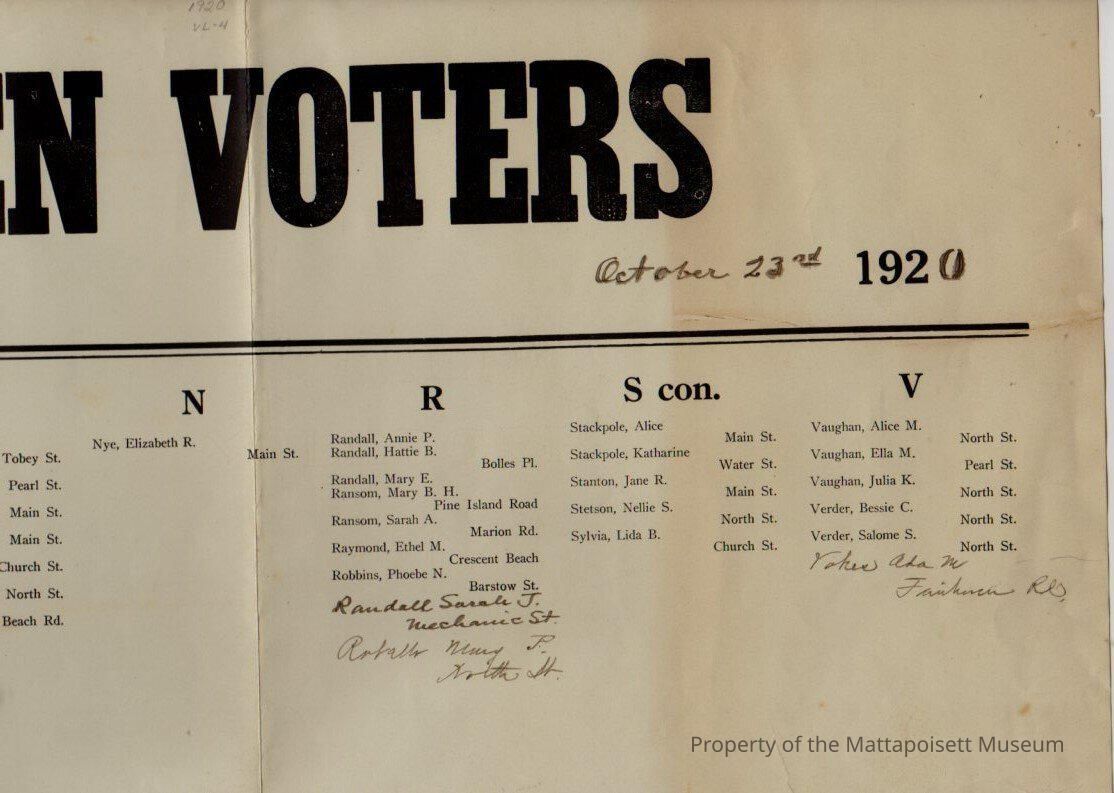 1920
VL-4
EN VOTERS
October 23rd 1920
Tobey St.
Pearl St.
Main St.
Main St.
Church St.
North St.
Beach Rd.
N
Nye, Elizabeth R.
Main St.
R
Randall, Annie P.
Randall, Hattie B.
Bolles Pl.
Randall, Mary E.
Ransom, Mary B. H.
Pine Island Road
Ransom, Sarah A.
Marion Rd.
Raymond, Ethel M.
Crescent Beach
Robbins, Phoebe N.
Barstow St.
Randall Sarah J.
Mechanic St.
Mary P.
North St.
S con.
Stackpole, Alice
Main St.
Stackpole, Katharine
Water St.
Stanton, Jane R.
Main St.
Stetson, Nellie S.
North St.
Sylvia, Lida B.
Church St.
V
Vaughan, Alice M.
North St.
Vaughan, Ella M.
Pearl St.
Vaughan, Julia K.
North St.
Verder, Bessie C.
North St.
Verder, Salome S.
North St.
Ada M
Rd.
Property of the Mattapoisett Museum